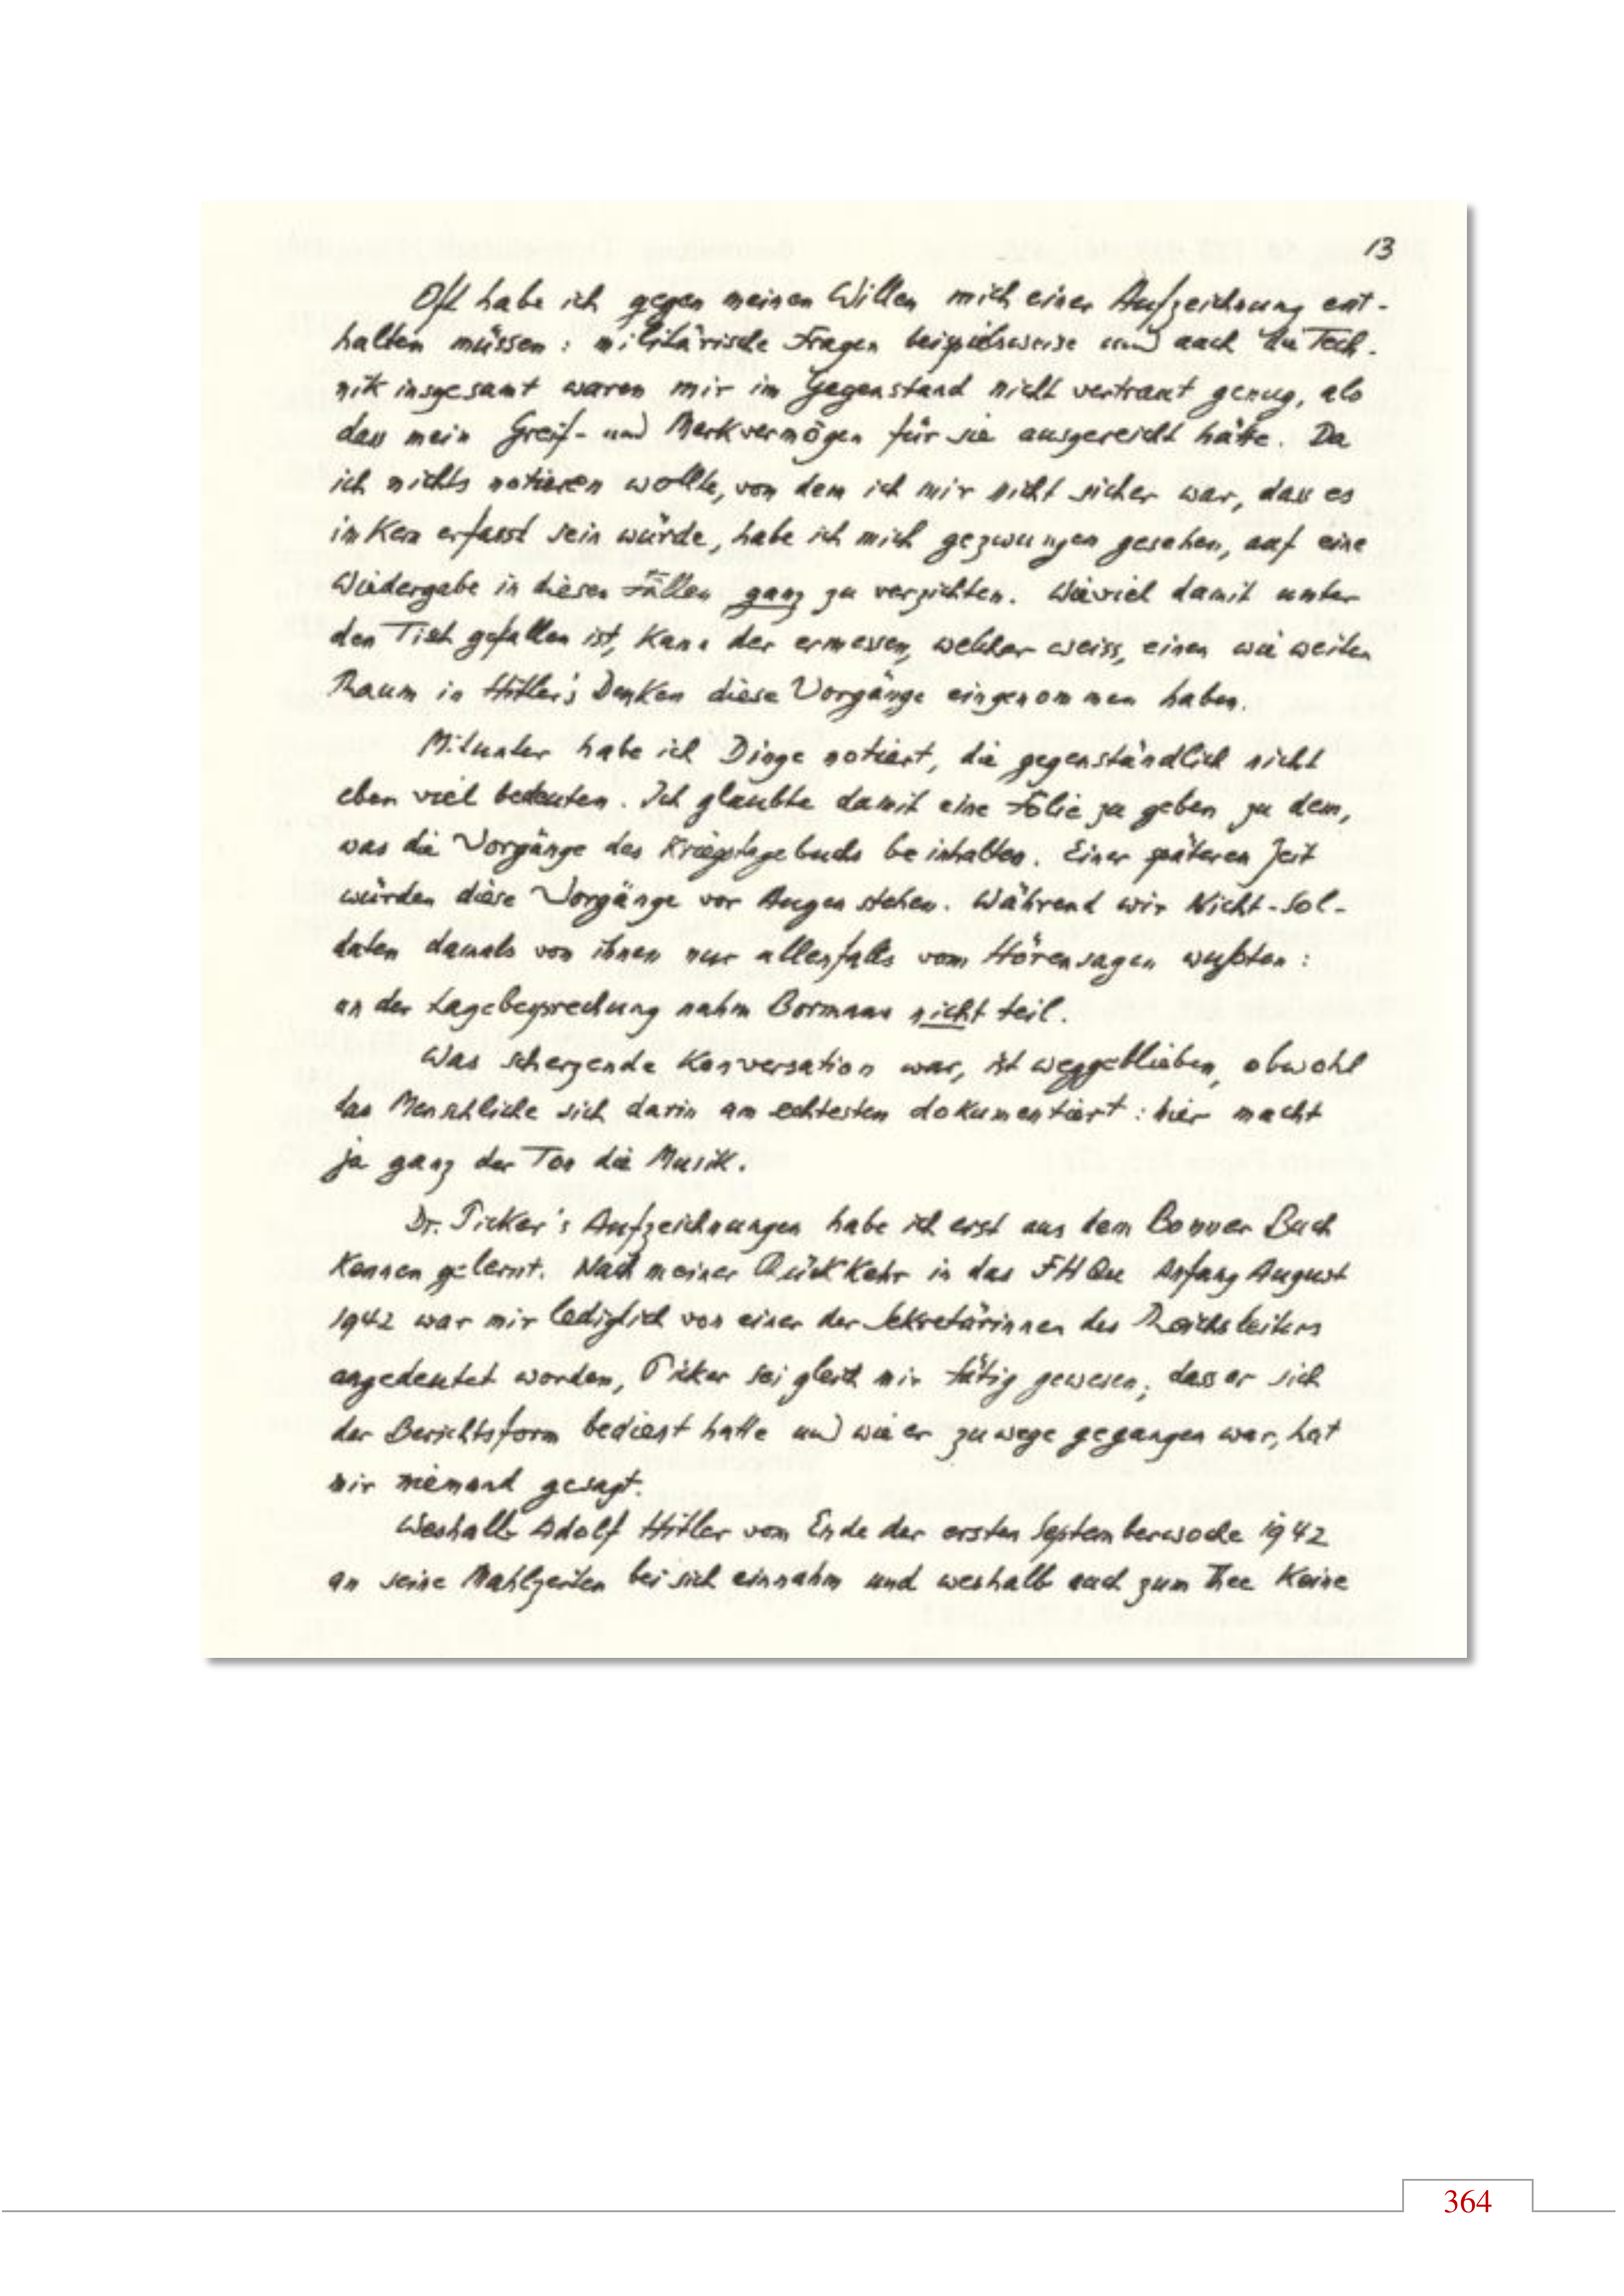 13
Oft habe ich gegen meinen Willen mich einer Aufzeichnung ent-
halten müssen: militärische Fragen beispielsweise und auch die Tech-
nik insgesamt waren mir im Gegenstand nicht vertraut genug, als
dass mein Greif- und Merkvermögen für sie ausgereicht hätte. Da
ich nichts notieren wollte, von dem ich mir nicht sicher war, dass es
im Kern erfasst sein würde, habe ich mich gezwungen gesehen, auf eine
Wiedergabe in diesen Fällen ganz zu verzichten. Wieviel damit unter
den Tisch gefallen ist, kann der ermessen, welcher weiss, einen wie weiten
Raum in Hitler's Denken diese Vorgänge eingenommen haben.
Mitunter habe ich Dinge notiert, die gegenständlich nicht
eben viel bedeuten. Ich glaubte damit eine Folie zu geben zu dem,
was die Vorgänge des Kriegstagebuchs beinhalten. Einer späteren Zeit
würden diese Vorgänge vor Augen stehen. Während wir Nicht-Sol-
daten damals von ihnen nur allenfalls vom Hörensagen wußten:
an der Lagebesprechung nahm Bormann nicht teil.
Was scherzende Konversation war, ist weggeblieben, obwohl
das Menschliche sich darin am echtesten dokumentiert: hier macht
ja ganz der Ton die Musik.
Dr. Picker's Aufzeichnungen habe ich erst aus dem Bonner Buch
kennen gelernt. Nach meiner Rückkehr in das FHQu Anfang August
1942 war mir lediglich von einer der Sekretärinnen des Reichsleiters
angedeutet worden, Picker sei gleich mir tätig gewesen; dass er sich
der Berichtsform bedient hatte und wie er zuwege gegangen war, hat
mir niemand gesagt.
Weshalb Adolf Hitler vom Ende der ersten Septemberwoche 1942
an seine Mahlzeiten bei sich einnahm und weshalb auch zum Thee keine
364